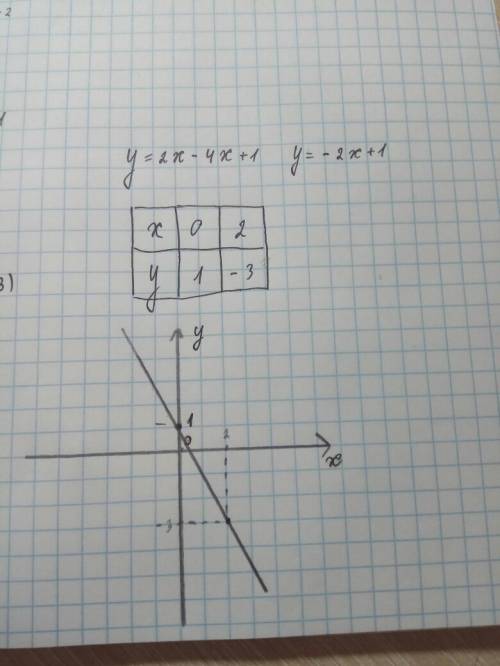 -2
y = 2x - 4x + 1 y = - 2x + 1
x 0 2
y 1 -3
3)
y
1
0 2
x
-3